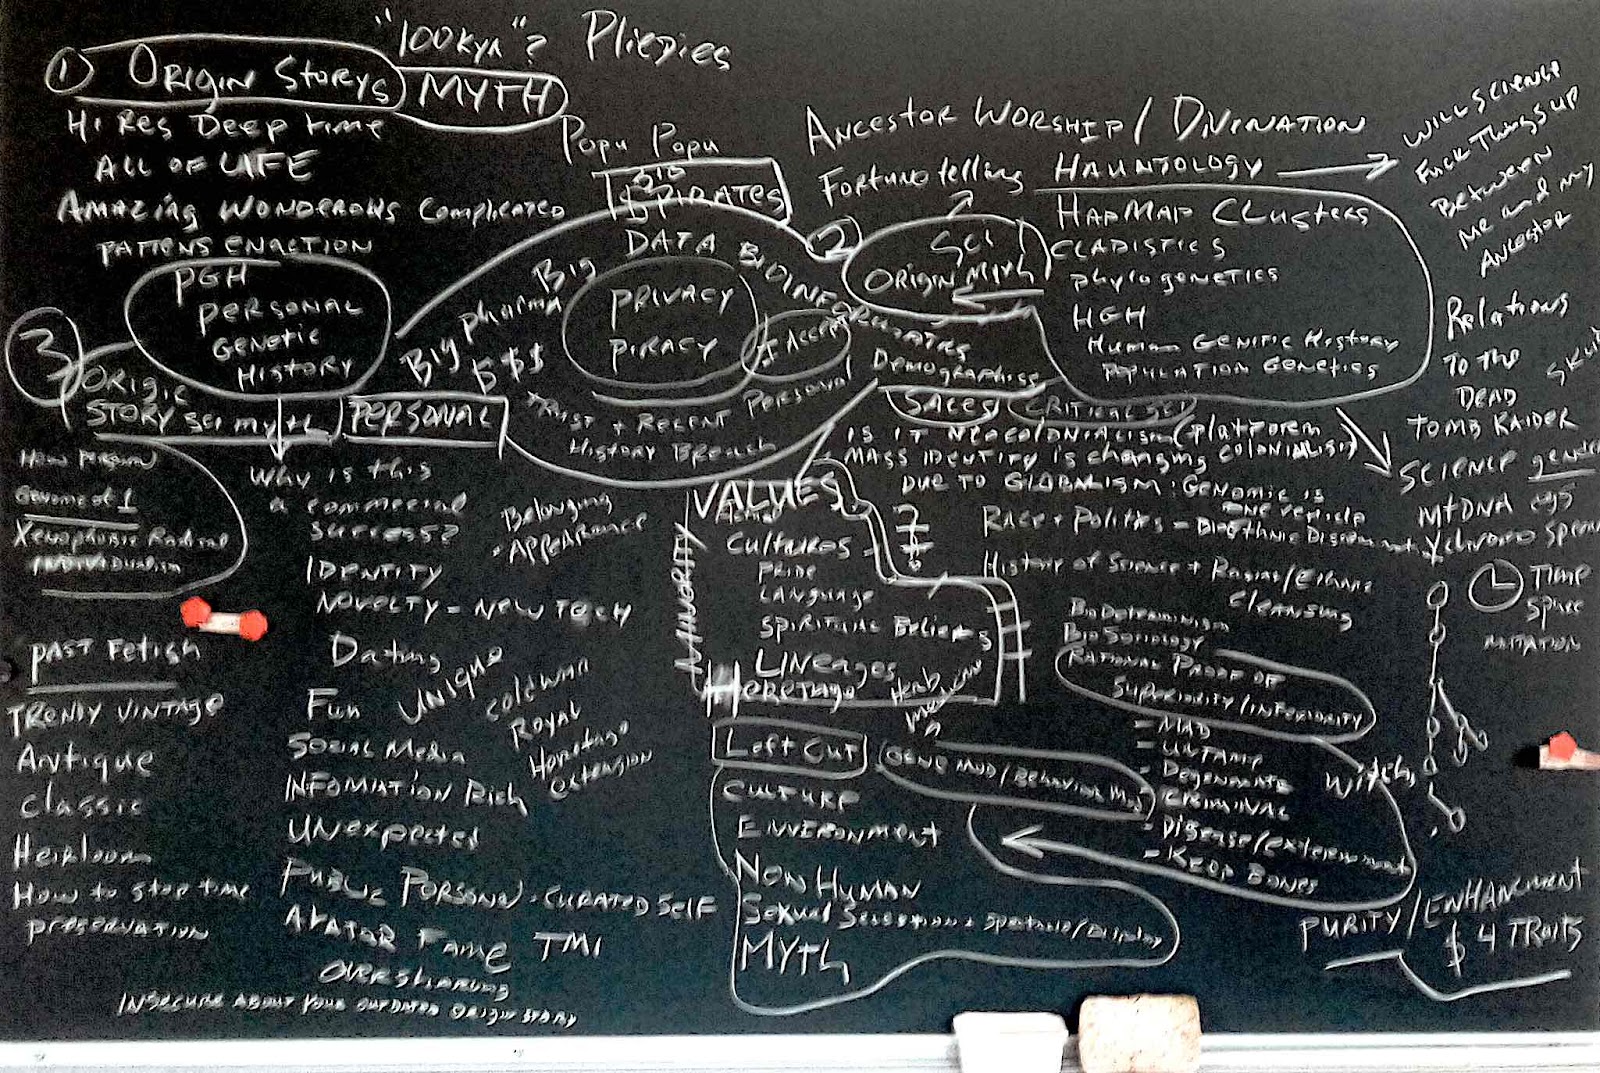 "100KYA"? Pliedies
① ORIGIN STORYS MYTH
Hi Res Deep time
ALL OF LIFE
AMAZING WONDEROUS Complicated
PATTERNS ENACTION
PGH
PERSONAL
GENETIC
HISTORY
3
ORIGIN
STORY Sci myth PERSONAL
Genome of 1
Xenophobic Radical
INDIVIDUALISM
PAST Fetish
TRENDY VINTAGE
Antique
Classic
Heirloom
How to stop time
preservation
Why is this
a commercial
success?
Belonging
- APPEARANCE
IDENTITY
NOVELTY = NEW TECH
Dating
Fun UNIQUE
Royal
Social Media
INFOMATION Rich
extension
UNexpected
PUBLIC PERSONA - CURATED SELF
AVATAR FAME TMI
OVERSHARING
INSECURE ABOUT YOUR OUTDATED ORIGIN STORY
Popu Popu
BIO
PIRATES
DATA
BIOINFORMATICS
Big
pharma
Big
B$$$
PRIVACY
PIRACY
TRUST + RECENT PERSONAL
HISTORY BREACH
ANCESTOR WORSHIP / DIVINATION
Fortunetelling HAUNTOLOGY
WILL SCIENCE
Fuck Things UP
Between
Me and my
ANCESTOR
2
SCI
ORIGIN Myth
HAPMAP CLusters
CLADISTICS
phylogenetics
HGH
Human GENETIC HISTORY
POPULATION GENETICS
DEMOGRAPHICS
SALES CRITICAL SCI
IS IT NEOCOLONIALISM (platform
colonialism)
MASS IDENTITY is changing
DUE TO GLOBALISM: GENOMIC IS
ONE vehicle
RACE + Politics =
HISTORY of Science + Racial/Ethnic
Cleansing
BioDeterminism
BioSociology
RATIONAL PROOF OF
SUPERIORITY/INFERIORITY
- MAD
- UNTAMP
- Degenerate
- CRIMINAL
- Disease/
- KEOP BONES
Relations
To the
DEAD
TOMB RAIDER
SCIENCE
MtDNA egg
TIME
PURITY/ENHANCMENT
$ 4 TRAITS
VALUES
MINORITY
CULTURES -
PRIDE
LANGUAGE
SPIRITUAL Beliefs
LINEAGES
Heretage
Herb
medicine
Left Out
GENE MOD/BEHAVIOR Mod
CULTURE
ENVIRONMENT
NON HUMAN
MYTH